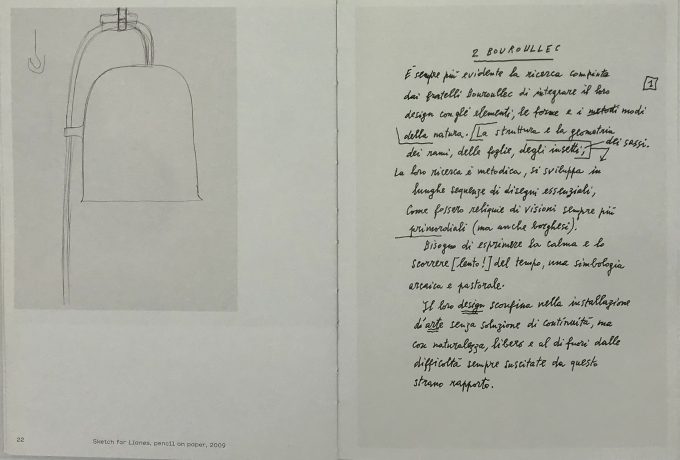 22
Sketch for Lianes, pencil on paper, 2009
2 BOUROULLEC
1
È sempre più evidente la ricerca compiuta
dai fratelli bouroullec di integrare il loro
design con gli elementi, le forme e i metodi modi
della natura. La struttura e la geometria
dei rami, delle foglie, degli insetti, dei sassi.
La loro ricerca è metodica, si sviluppa in
lunghe sequenze di disegni essenziali,
come fossero reliquie di visioni sempre più
primordiali (ma anche borghesi).
Bisogno di esprimere la calma e lo
scorrere [lento!] del tempo, una simbologia
arcaica e pastorale.
Il loro design sconfina nella installazione
d'arte senza soluzione di continuità, ma
con naturalezza, libero e al di fuori dalle
difficoltà sempre suscitate da questo
strano rapporto.